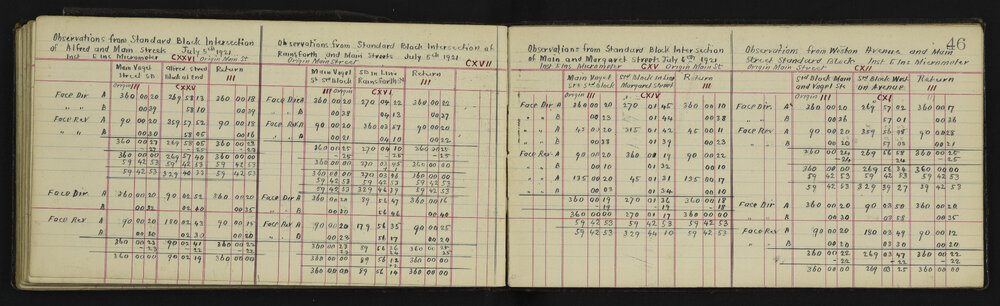 Observations from Standard Block Intersection
of Alfred and Mann Streets July 5th 1921
Inst E Ins Micrometer CXXVI Origin Main St
Main Vogel Alfred Street Return
Street SB Block at End III
Origin III CXXV
Face Dir A 360 00 20 269 58 13 360 00 18
" " B 00 39 58 10 00 39
Face Rev A 90 00 20 359 57 52 90 00 18
" " B 00 30 58 05 00 16
360 00 27 269 58 05 360 00 23
-27 -25 -23
360 00 00 269 57 40 360 00 00
59 42 53 59 42 53 59 42 53
59 42 53 329 40 33 59 42 53
Face Dir A 360 00 20 90 02 52 360 00 20
B 00 32 02 40 00 35
Face Rev A 90 00 20 180 02 43 90 00 15
B 00 20 02 30 00 20
360 00 23 90 02 41 360 00 22
-23 -22 -22
360 00 00 90 02 19 360 00 00
Observations from Standard Block Intersection at
Rainsforth and Main Streets July 5th 1921
Origin Main Street CXVII
Main Vogel SB in Line Return
St SB Block Rainsforth St III
III Origin CXVI
Face Dir A 360 00 20 270 04 22 360 00 22
" " B 00 38 04 13 00 37
Face Rev A 90 00 20 360 03 57 90 00 20
" " B 00 21 04 10 00 22
360 00 25 270 04 10 360 00 25
-25 -25 -25
360 00 00 270 03 45 360 00 00
360 00 00 270 03 46 360 00 00
59 42 53 59 42 53 59 42 53
59 42 53 329 46 39 59 42 53
Face Dir A 360 00 20 89 56 47 360 00 16
" " B 00 30 56 46 00 40
Face Rev A 90 00 20 179 56 35 90 00 25
" " B 00 22 56 17 00 20
360 00 23 89 56 36 360 00 25
-23 -24 -25
360 00 00 89 56 12 360 00 00
360 00 00 89 56 14 360 00 00
46
Observations from Standard Block Intersection
of Main and Margaret Streets July 6th 1921
Inst E Ins Micrometer CXV Origin Main St
Main Vogel St Block in Line Return
Sts St Block Margaret Street III
Origin III CXIV
Face Dir A 360 00 20 270 01 45 360 00 10
" " B 00 23 01 44 00 38
" " A 45 00 20 315 01 42 45 00 11
" " B 00 28 01 39 00 23
Face Rev A 90 00 20 360 01 19 90 00 22
" " B 00 10 01 32 00 10
" " A 135 00 20 45 01 31 135 00 17
" " B 00 03 01 34 00 10
360 00 19 270 01 36 360 00 18
-19 -19 -18
360 00 00 270 01 17 360 00 00
59 42 53 59 42 53 59 42 53
59 42 53 329 44 10 59 42 53
Observations from Wiston Avenue and Main
Street Standard Block Inst E Ins Micrometer
Origin Main Street CXII
Std Block Main St Block West Return
and Vogel Sts on Avenue III
Origin III CXI
Face Dir. A 360 00 20 269 57 02 360 00 17
" " B 00 36 57 01 00 36
Face Rev A 90 00 20 359 56 48 90 00 28
" " B 00 20 57 03 00 21
360 00 24 269 56 58 360 00 25
-24 -24 -25
360 00 00 269 56 34 360 00 00
59 42 53 59 42 53 59 42 53
59 42 53 329 39 27 59 42 53
Face Dir A 360 00 20 90 03 50 360 00 20
" " B 00 30 03 58 00 35
Face Rev A 90 00 20 180 03 49 90 00 12
" " B 00 20 03 30 00 20
360 00 22 269 03 47 360 00 22
-22 -22 -22
360 00 00 269 03 25 360 00 00